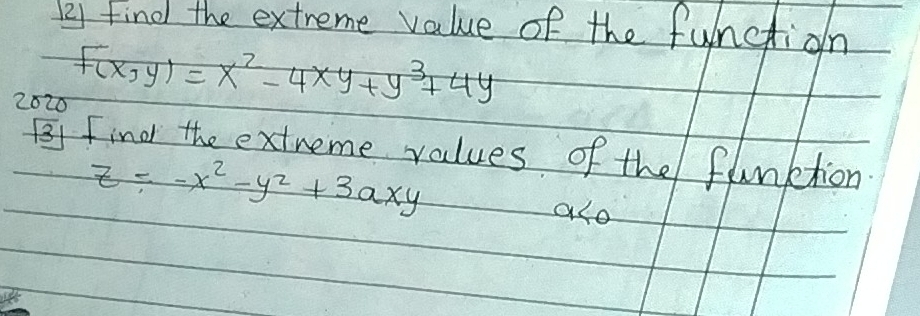 [2] find the extreme value of the function
f(x,y) = x² - 4xy + y³ + 4y
2020
[3] find the extreme values of the function.
z = -x² - y² + 3axy a<0